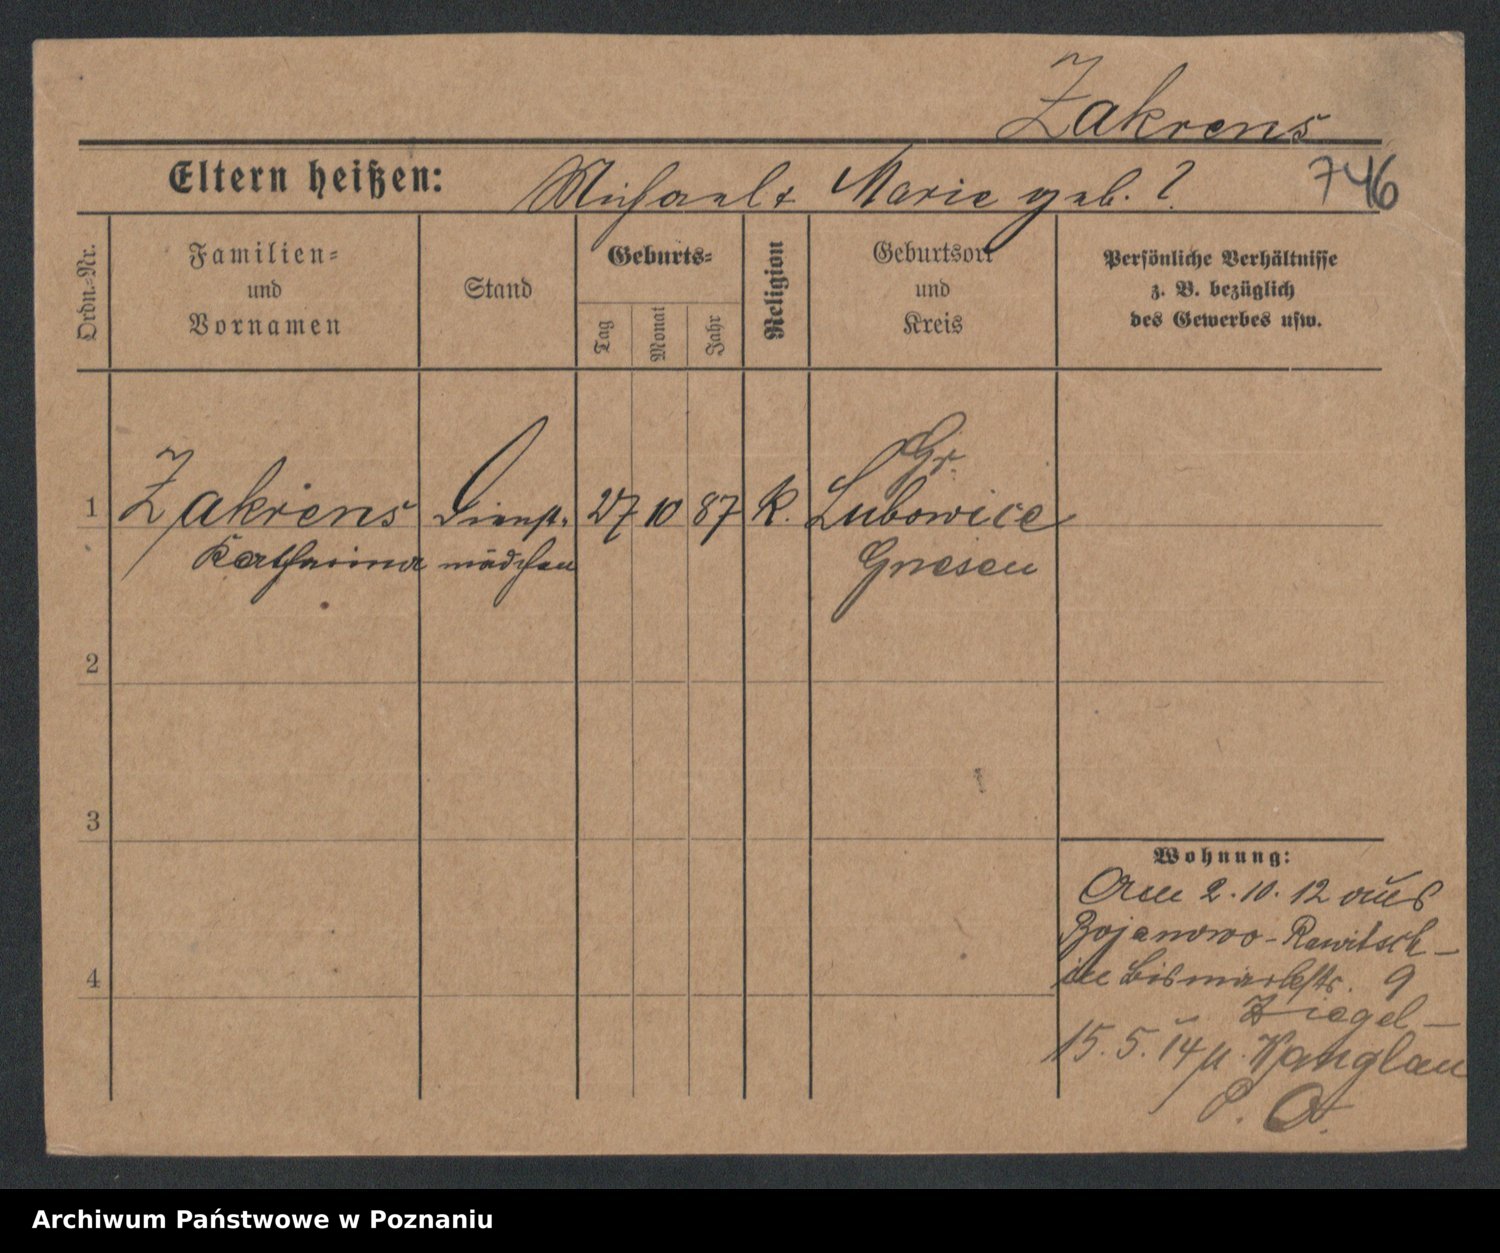 Zakrens
Eltern heißen: Michael & Marie geb. ?
746
Ordn.-Nr.
Familien-
und
Vornamen
Stand
Geburts-
Tag
Monat
Jahr
Religion
Geburtsort
und
Kreis
Persönliche Verhältnisse
z. B. bezüglich
des Gewerbes usw.
Gr.
1 Zakrens Dienst- 27 10 87 K. Lubowice
Katharina mädchen Gnesen
2
3
4
Wohnung:
2.10.12 aus
Bojanowo-Rawitsch-
Bismarckstr. 9
Ziegel-
15.5.14
P. O.
Archiwum Państwowe w Poznaniu